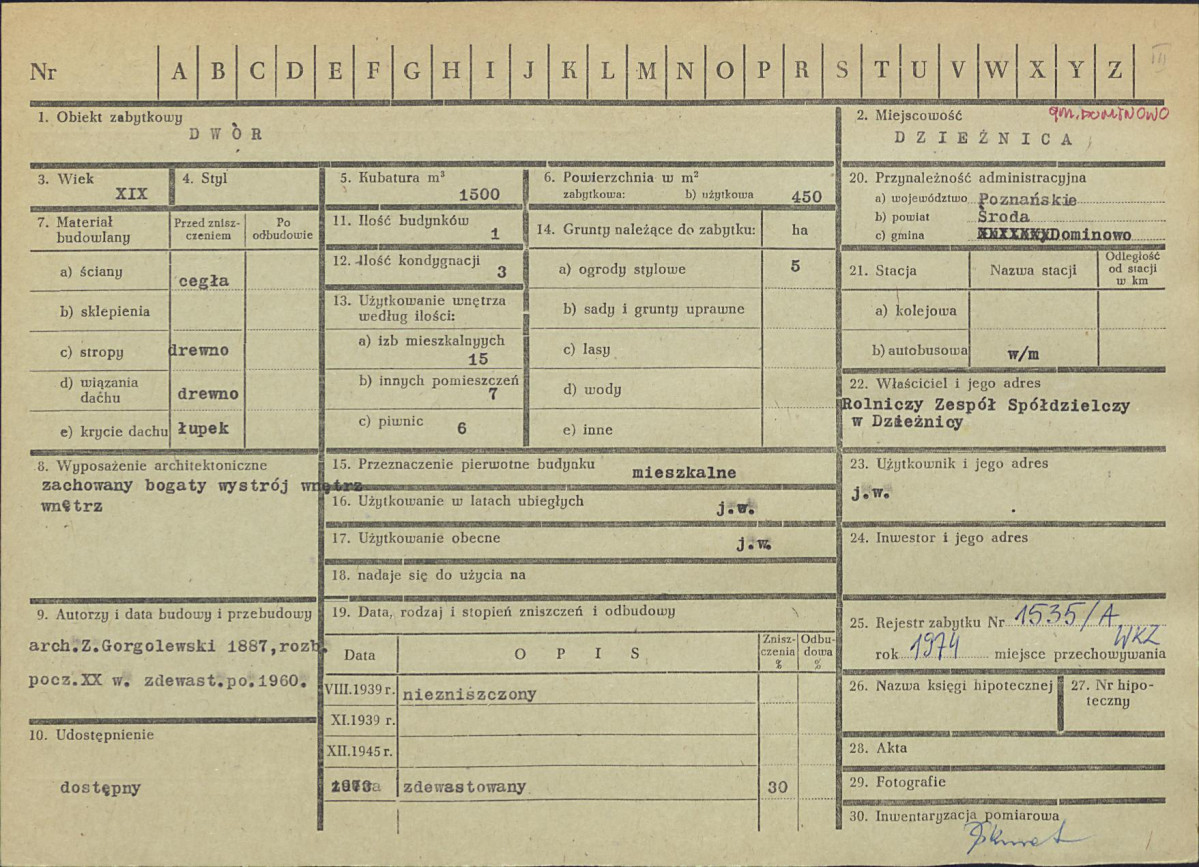 Nr A B C D E F G H I J K L M N O P R S T U V W X Y Z III
1. Obiekt zabytkowy
DWÓR
2. Miejscowość gm. DOMINOWO
DZIEŹNICA
3. Wiek
XIX
4. Styl
5. Kubatura m³
1500
6. Powierzchnia w m²
zabytkowa: b) użytkowa 450
20. Przynależność administracyjna
a) województwo Poznańskie
b) powiat Środa
c) gmina Dominowo
7. Materiał budowlany
Przed zniszczeniem
Po odbudowie
a) ściany cegła
b) sklepienia
c) stropy drewno
d) wiązania dachu drewno
e) krycie dachu łupek
11. Ilość budynków
1
12. Ilość kondygnacji
3
13. Użytkowanie wnętrza
według ilości:
a) izb mieszkalnyych
15
b) innych pomieszczeń
7
c) piwnic 6
14. Grunty należące do zabytku: ha
a) ogrody stylowe 5
b) sady i grunty uprawne
c) lasy
d) wody
e) inne
21. Stacja Nazwa stacji Odległość od stacji w km
a) kolejowa
b) autobusowa w/m
22. Właściciel i jego adres
Rolniczy Zespół Spółdzielczy
w Dzieżnicy
8. Wyposażenie architektoniczne
zachowany bogaty wystrój wnętrz
wnętrz
15. Przeznaczenie pierwotne budynku mieszkalne
16. Użytkowanie w latach ubiegłych j.w.
17. Użytkowanie obecne j.w.
18. nadaje się do użycia na
23. Użytkownik i jego adres
j.w.
24. Inwestor i jego adres
9. Autorzy i data budowy i przebudowy
arch.Z.Gorgolewski 1887,rozb.
pocz.XX w. zdewast.po.1960.
10. Udostępnienie
dostępny
19. Data, rodzaj i stopień zniszczeń i odbudowy
Data OPIS Zniszczenia % Odbudowa %
VIII.1939 r. niezniszczony
XI.1939 r.
XII.1945 r.
zdewastowany 30
25. Rejestr zabytku Nr 1535/A
rok 1974 miejsce przechowywania WKZ
26. Nazwa księgi hipotecznej
27. Nr hipoteczny
28. Akta
29. Fotografie
30. Inwentaryzacja pomiarowa